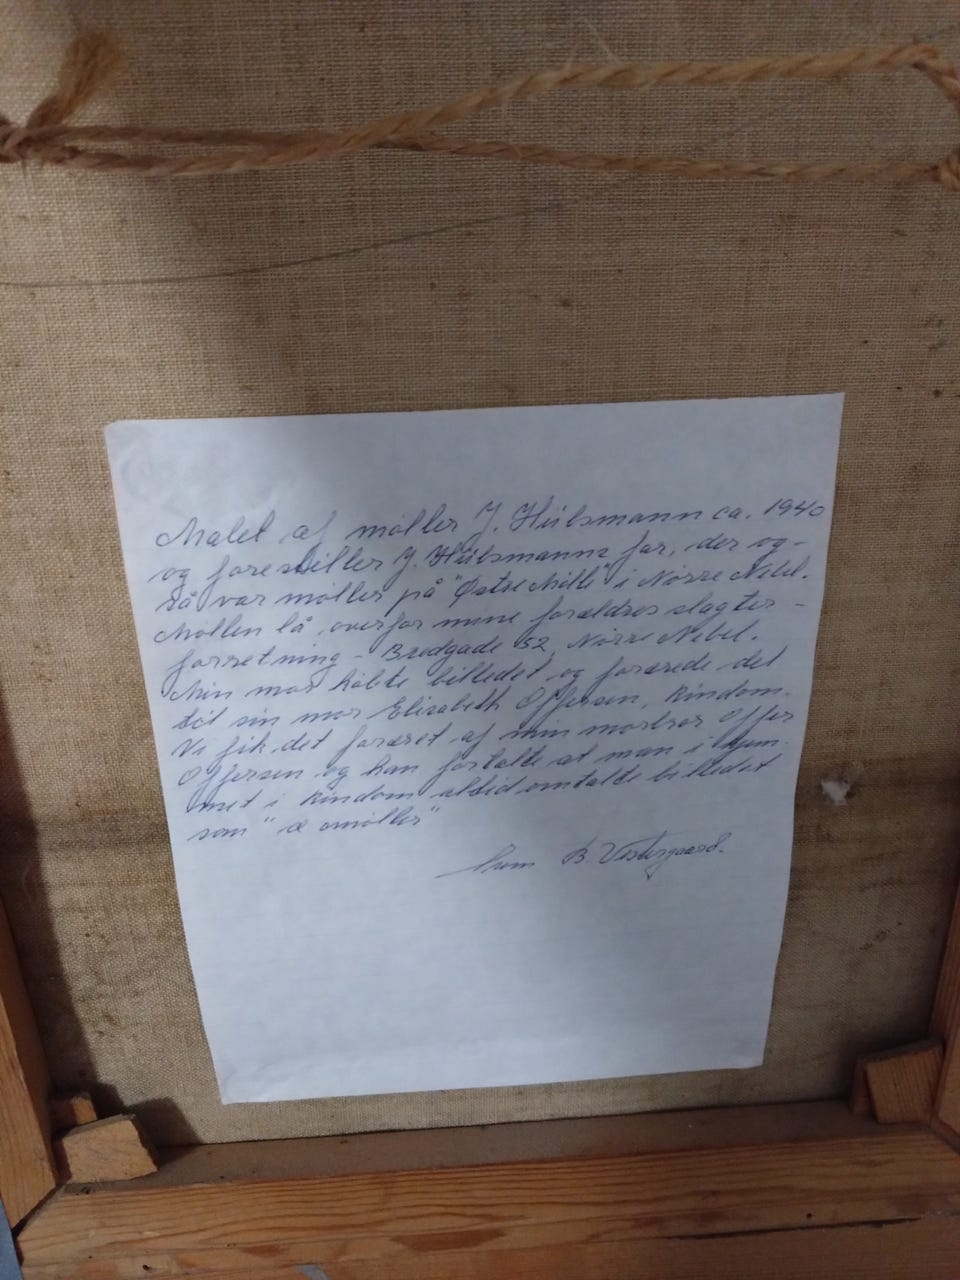 Malet af møller J. Hülsmann ca. 1940
og forestiller J. Hülsmanns far, der og-
så var møller på "Østre Mølle" i Nørre Nebel.
Møllen lå overfor mine forældres slagter-
forretning - Bredgade 52, Nørre Nebel.
Min mor købte billedet og forærede det
til sin mor Elisabeth Offersen, Kindom.
Vi fik det foræret af min morbror Offer
Offersen og han fortalte at man i hjem-
met i Kindom altid omtalte billedet
som "æ omøller"
B. Vestergaard.